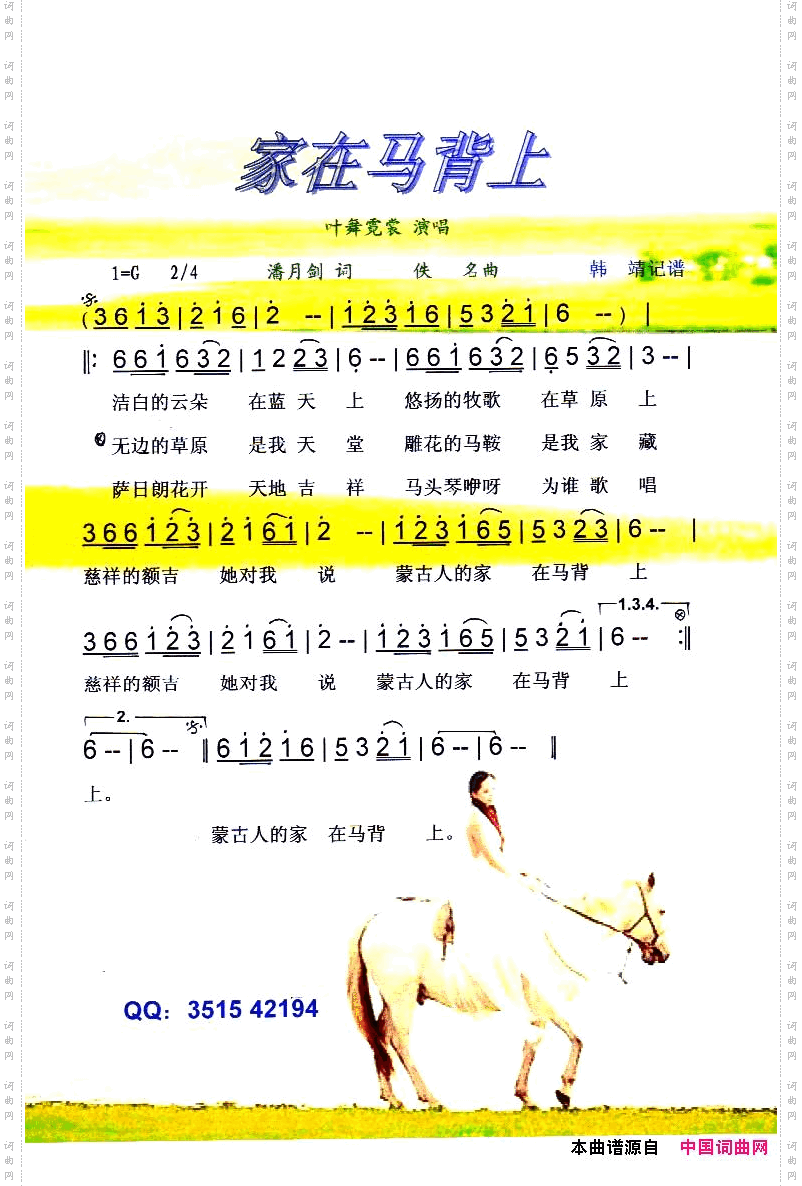 家在马背上
叶舞霓裳 演唱
1=G 2/4 潘月剑 词 佚 名曲 韩 靖记谱
( 3 6 1 3 | 2 1 6 | 2 -- | 1 2 3 1 6 | 5 3 2 1 | 6 -- ) |
‖: 6 6 1 6 3 2 | 1 2 2 3 | 6 -- | 6 6 1 6 3 2 | 6 5 3 2 | 3 -- |
洁白的云朵 在蓝 天 上 悠扬的牧歌 在草 原 上
无边的草原 是我 天 堂 雕花的马鞍 是我 家 藏
萨日朗花开 天地 吉 祥 马头琴咿呀 为谁 歌 唱
3 6 6 1 2 3 | 2 1 6 1 | 2 -- | 1 2 3 1 6 5 | 5 3 2 3 | 6 -- |
慈祥的额吉 她对我 说 蒙古人的家 在马背 上
1.3.4.
3 6 6 1 2 3 | 2 1 6 1 | 2 -- | 1 2 3 1 6 5 | 5 3 2 1 | 6 -- :‖
慈祥的额吉 她对我 说 蒙古人的家 在马背 上
2.
6 -- | 6 -- ‖ 6 1 2 1 6 | 5 3 2 1 | 6 -- | 6 -- ‖
上。
蒙古人的家 在马背 上。
QQ：3515 42194
本曲谱源自 中国词曲网